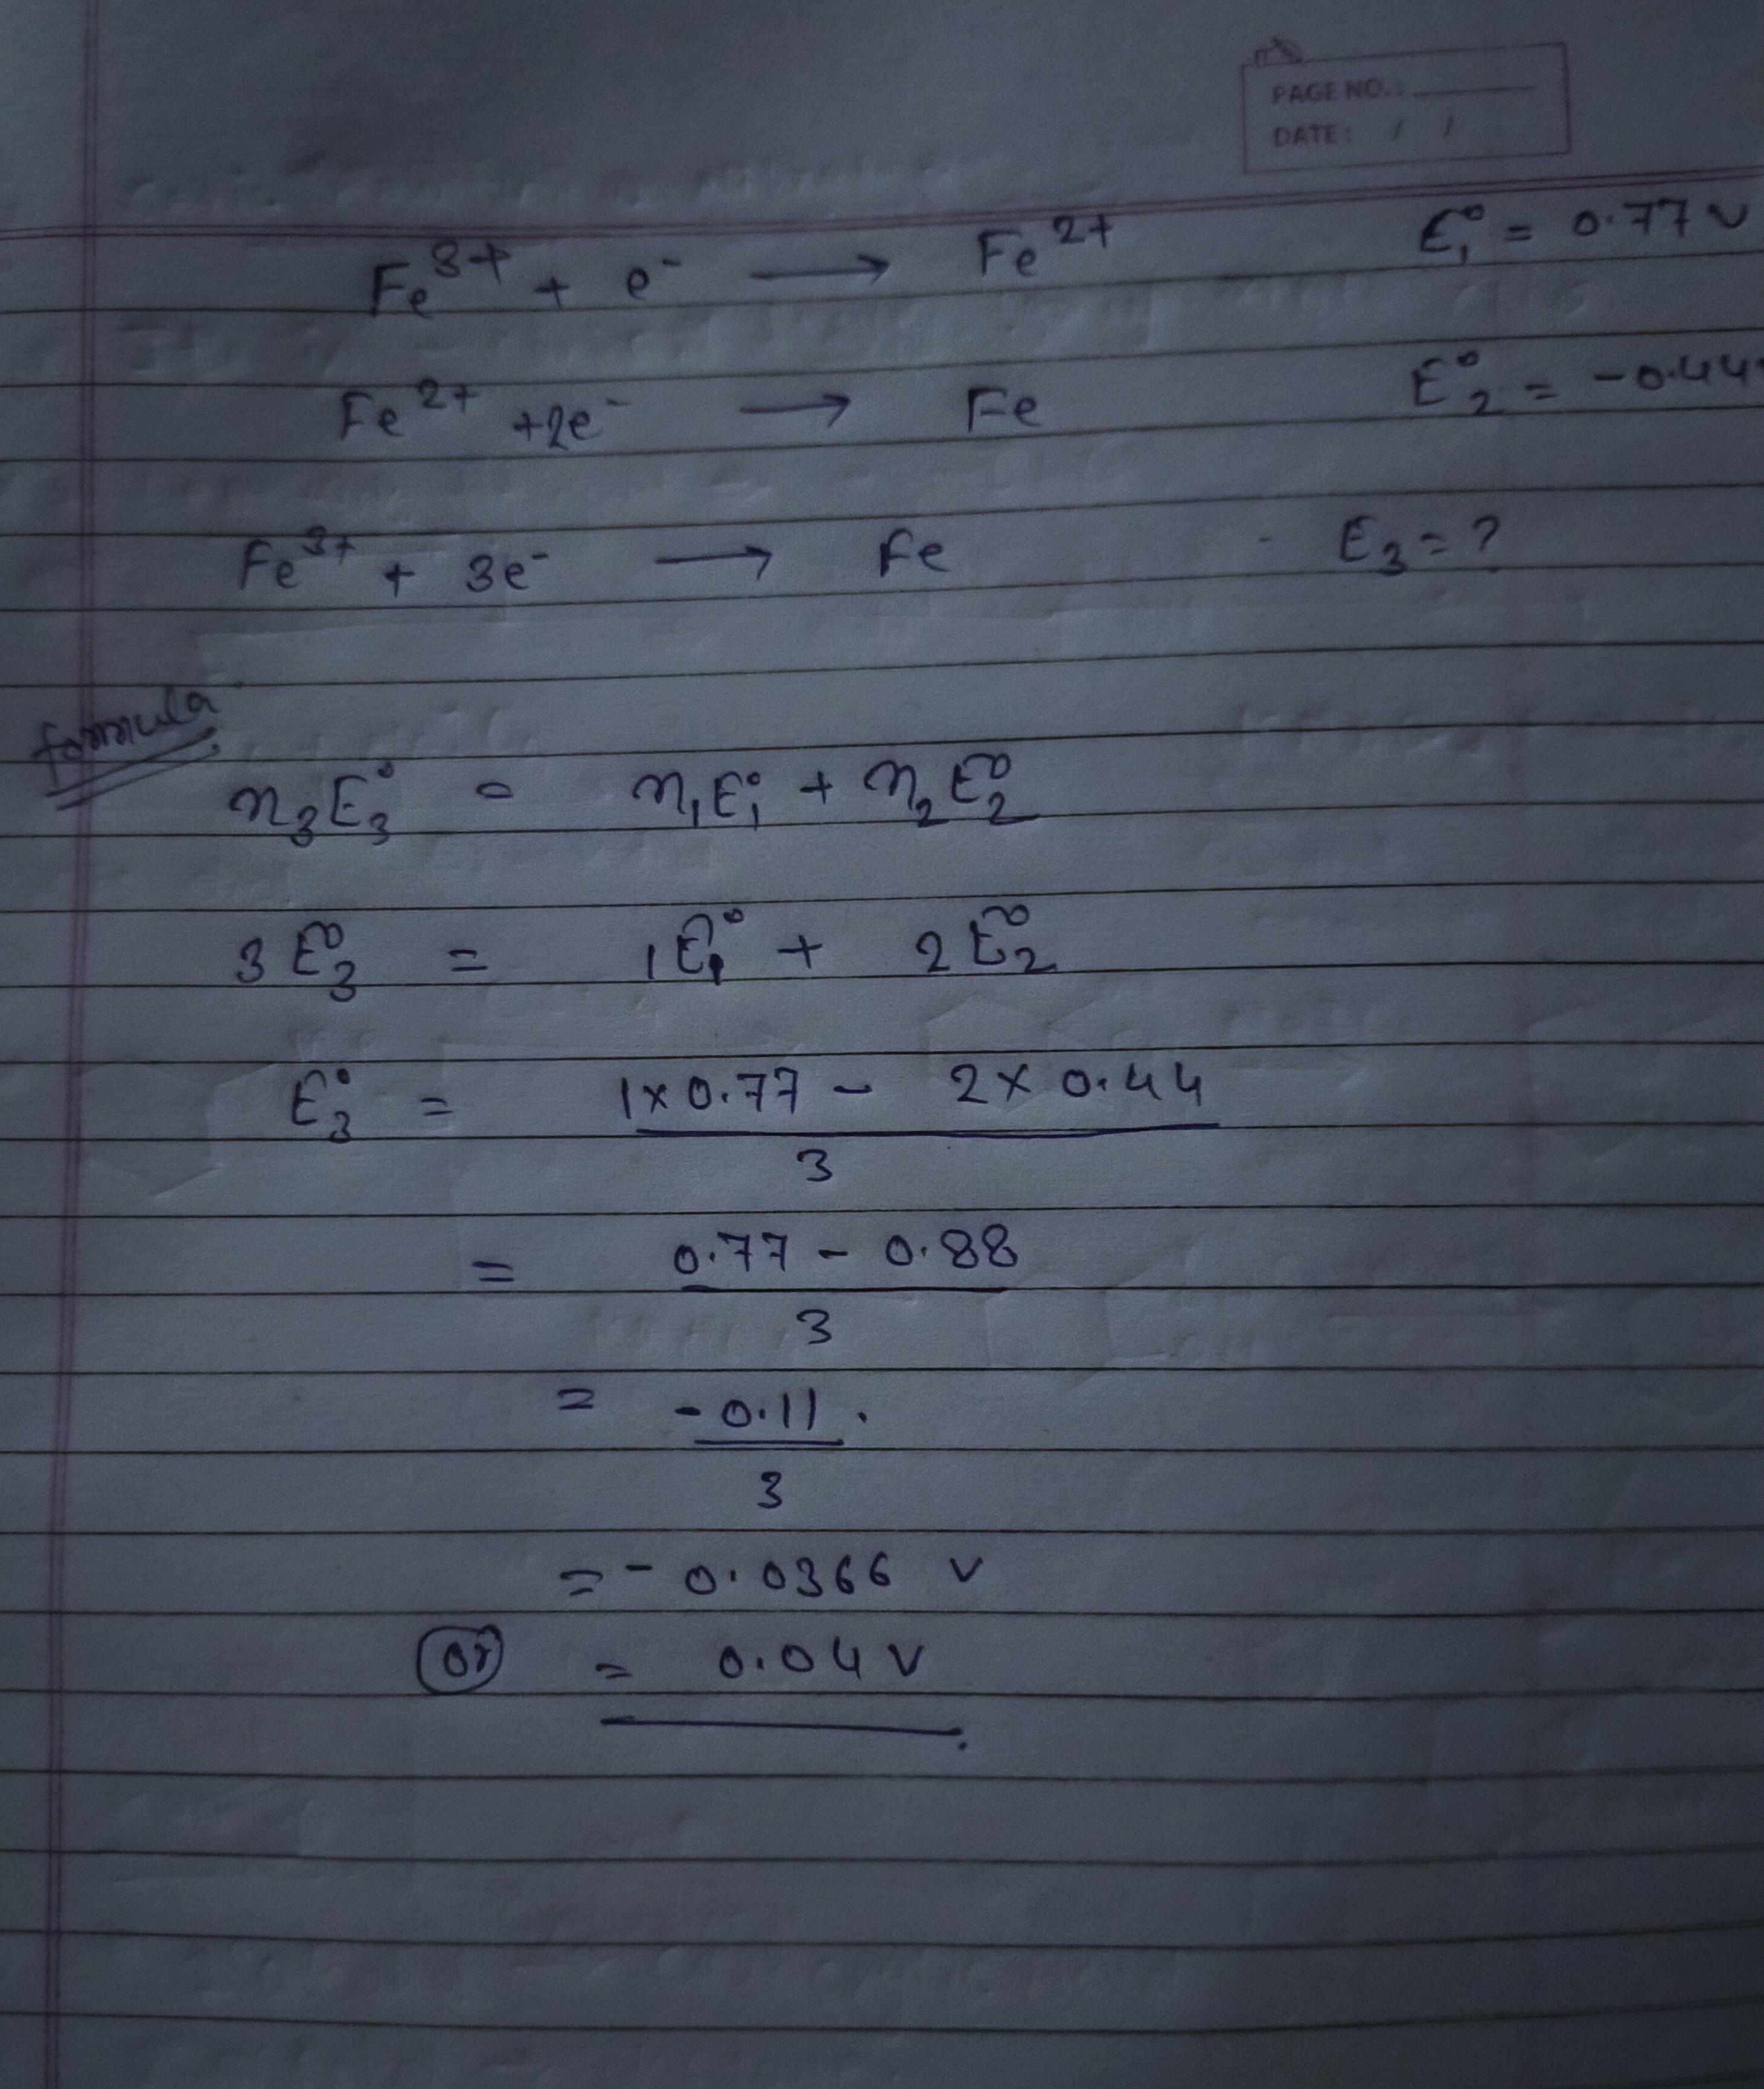 PAGE NO.:
DATE: / /
Fe³⁺ + e⁻ → Fe²⁺ E₁° = 0.77 V
Fe²⁺ +2e⁻ → Fe E₂° = -0.44
Fe³⁺ + 3e⁻ → Fe E₃ = ?
formula
n₃E₃° = n₁E₁° + n₂E₂°
3E₃° = 1E₁° + 2E₂°
E₃° = 1×0.77 - 2×0.44
3
= 0.77 - 0.88
3
= -0.11.
3
= -0.0366 V
or = 0.04 V